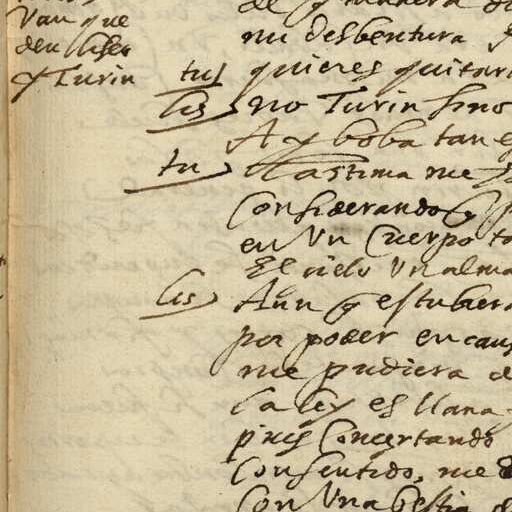 Van que
den lisse
y Turin
de q manera d
mi desbentura
tu) quieres quitar
lis) no Turin sino
Ay boba tan
tu) Lastima me
Considerando q
en Vn Cuerpo t
El cielo Vn alma
lis) Aun q estubier
por poder en caus
me pudiera d
La ley es llana
pues Concertando
Consentido, me
Con Vna bestia d